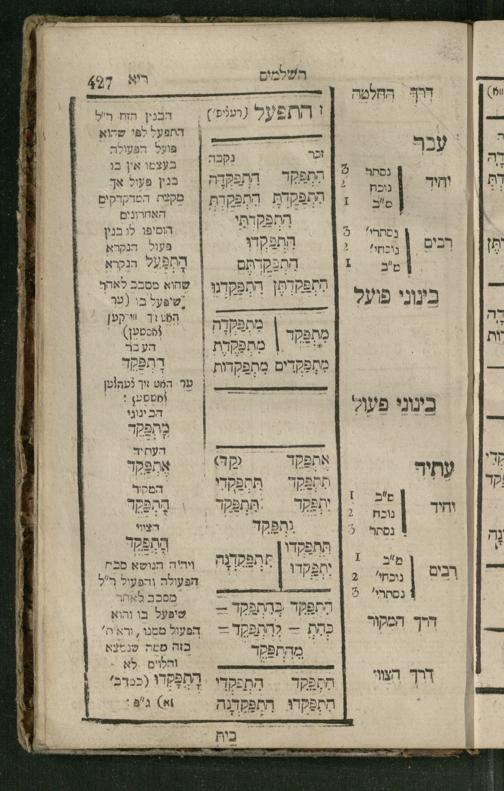 השלמים
ריא 427
דרך החלטה
עבר
יחיד
נסתר 3
נוכח 2
מ"ב 1
רבים
נסתרי' 3
נוכחי' 2
מ"ב 1
בינוני פועל
בינוני פעול
עתיד
יחיד
מ"ב 1
נוכח 2
נסתר 3
רבים
מ"ב 1
נוכחי' 2
נסתרי' 3
דרך המקור
דרך הצווי
ז התפעל
זכר נקבה
הִתְפַּקֵּד הִתְפַּקְּדָה
הִתְפַּקַּדְתָּ הִתְפַּקַּדְתְּ
הִתְפַּקַּדְתִּי
הִתְפַּקְּדוּ
הִתְפַּקַּדְתֶּם
הִתְפַּקַּדְתֶּן הִתְפַּקַּדְנוּ
מִתְפַּקֵּד
מִתְפַּקְּדָה
מִתְפַּקֶּדֶת
מִתְפַּקְּדִים מִתְפַּקְּדוֹת
אֶתְפַּקֵּד
תִּתְפַּקֵּד תִּתְפַּקְּדִי
יִתְפַּקֵּד תִּתְפַּקֵּד
נִתְפַּקֵּד
תִּתְפַּקְּדוּ
יִתְפַּקְּדוּ
תִּתְפַּקֵּדְנָה
הִתְפַּקֵּד בְּהִתְפַּקֵּד =
כְּהִתְ = לְהִתְפַּקֵּד =
מֵהִתְפַּקֵּד
הִתְפַּקֵּד הִתְפַּקְּדִי
הִתְפַּקְּדוּ הִתְפַּקֵּדְנָה
הבנין הזה ר"ל
התפעל לפי שהוא
פועל הפעולה
בעצמו אין בו
בנין פעול אך
מקצת המדקדקים
האחרונים
הוסיפו לו בנין
פעול הנקרא
הָתְפַּעַל הנקרא
שהוא מסבב לאחר
שיפעל בו (ער
העבר
הָתְפַּקֵּד
הבינוני
מָתְפַּקֵּד
העתיד
אָתְפַּקֵּד
המקור
הָתְפַּקֵּד
הצווי
הָתְפַּקֵּד
ויהיה הנושא סבת
הפעולה והפעול ר"ל
מסבב לאחר
שיפעל בו והוא
הפעול ממנו, וראיה'
בזה ממה שנמצא
והלוים לא
הָתְפָּקְדוּ (במדב'
א) ג"פ:
בית